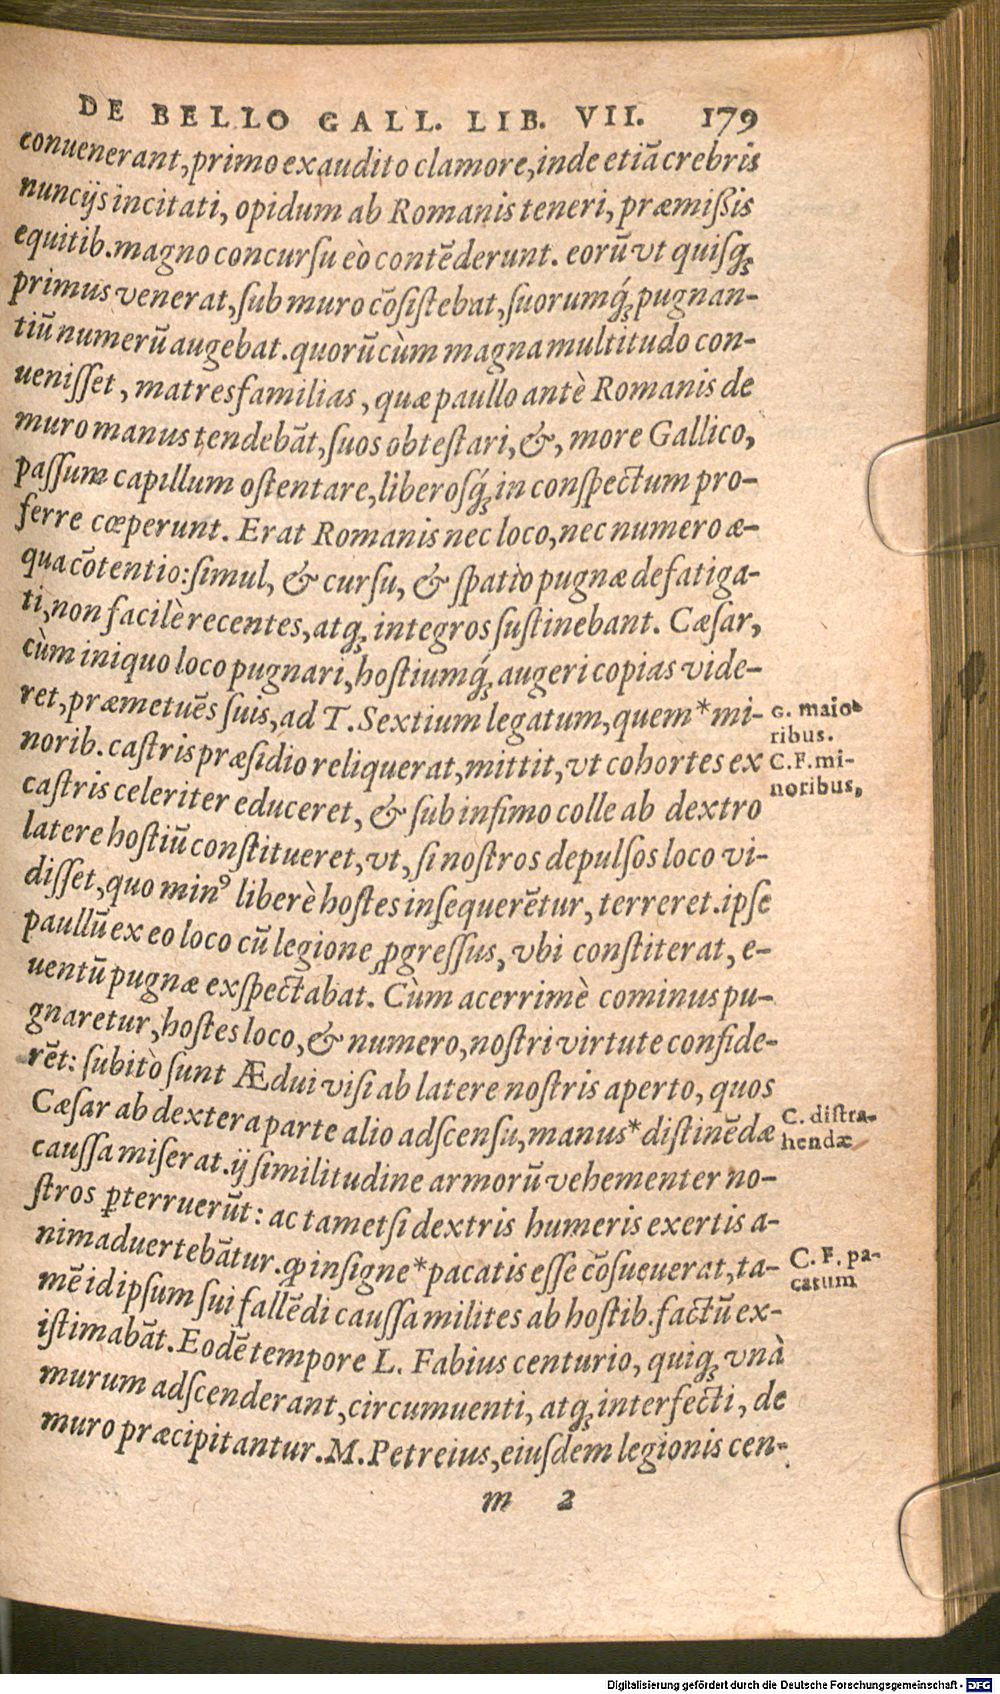 DE BELLO GALL. LIB. VII. 179
conuenerant, primo exaudito clamore, inde etiā crebris
nuncijs incitati, opidum ab Romanis teneri, præmißis
equitib. magno concursu eò contēderunt. eorū vt quisq́ꝫ
primus venerat, sub muro cōsistebat, suorumq́ꝫ pugnan-
tiū numerū augebat. quorū cùm magna multitudo con-
uenisset, matresfamilias, quæ paullo antè Romanis de
muro manus tendebāt, suos obtestari, &, more Gallico,
passum capillum ostentare, liberosq́ꝫ in conspectum pro-
ferre cœperunt. Erat Romanis nec loco, nec numero æ-
qua cōtentio: simul, & cursu, & spatio pugnæ defatiga-
ti, non facilè recentes, atqꝫ integros sustinebant. Cæsar,
cùm iniquo loco pugnari, hostiumq́ꝫ augeri copias vide-
ret, præmetuēs suis, ad T. Sextium legatum, quem * mi-
norib. castris præsidio reliquerat, mittit, vt cohortes ex
castris celeriter educeret, & sub infimo colle ab dextro
latere hostiū constitueret, vt, si nostros depulsos loco vi-
disset, quo minꝰ liberè hostes insequerētur, terreret. ipse
paullū ex eo loco cū legione ꝓgressus, vbi constiterat, e-
uentū pugnæ exspectabat. Cùm acerrimè cominus pu-
gnaretur, hostes loco, & numero, nostri virtute confide-
rēt: subitò sunt Ædui visi ab latere nostris aperto, quos
Cæsar ab dextera parte alio adscensu, manus * distinēdæ
caussa miserat. ij similitudine armorū vehementer no-
stros ꝑterruerūt: ac tametsi dextris humeris exertis a-
nimaduertebātur. ꝙ insigne * pacatis esse cōsueuerat, ta-
mē id ipsum sui fallēdi caussa milites ab hostib. factū ex-
istimabāt. Eodē tempore L. Fabius centurio, quiqꝫ vnà
murum adscenderant, circumuenti, atqꝫ interfecti, de
muro præcipitantur. M. Petreius, eiusdem legionis cen-
m 2
G. maio-
ribus.
C.F. mi-
noribus,
C. distra-
hendæ
C. F. pa-
catum
Digitalisierung gefördert durch die Deutsche Forschungsgemeinschaft - DFG